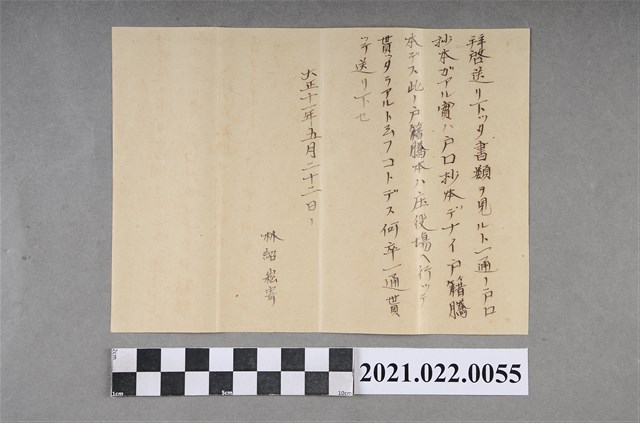 拝啓送リ下ッタ書類ヲ見ルト一通ノ戸口
抄本ガアル實ハ戸口抄本デナイ戸籍謄
本デス此ノ戸籍謄本ハ庄役場ヘ行ッテ
貰ッタラアルト云フコトデス何卒一通貰
ッテ送リ下セ
大正十一年五月二十二日
林紹 寄
2021.022.0055
1cm
5cm
10cm